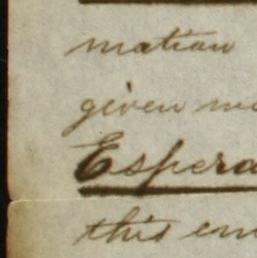 mation
given me
Espera
this em